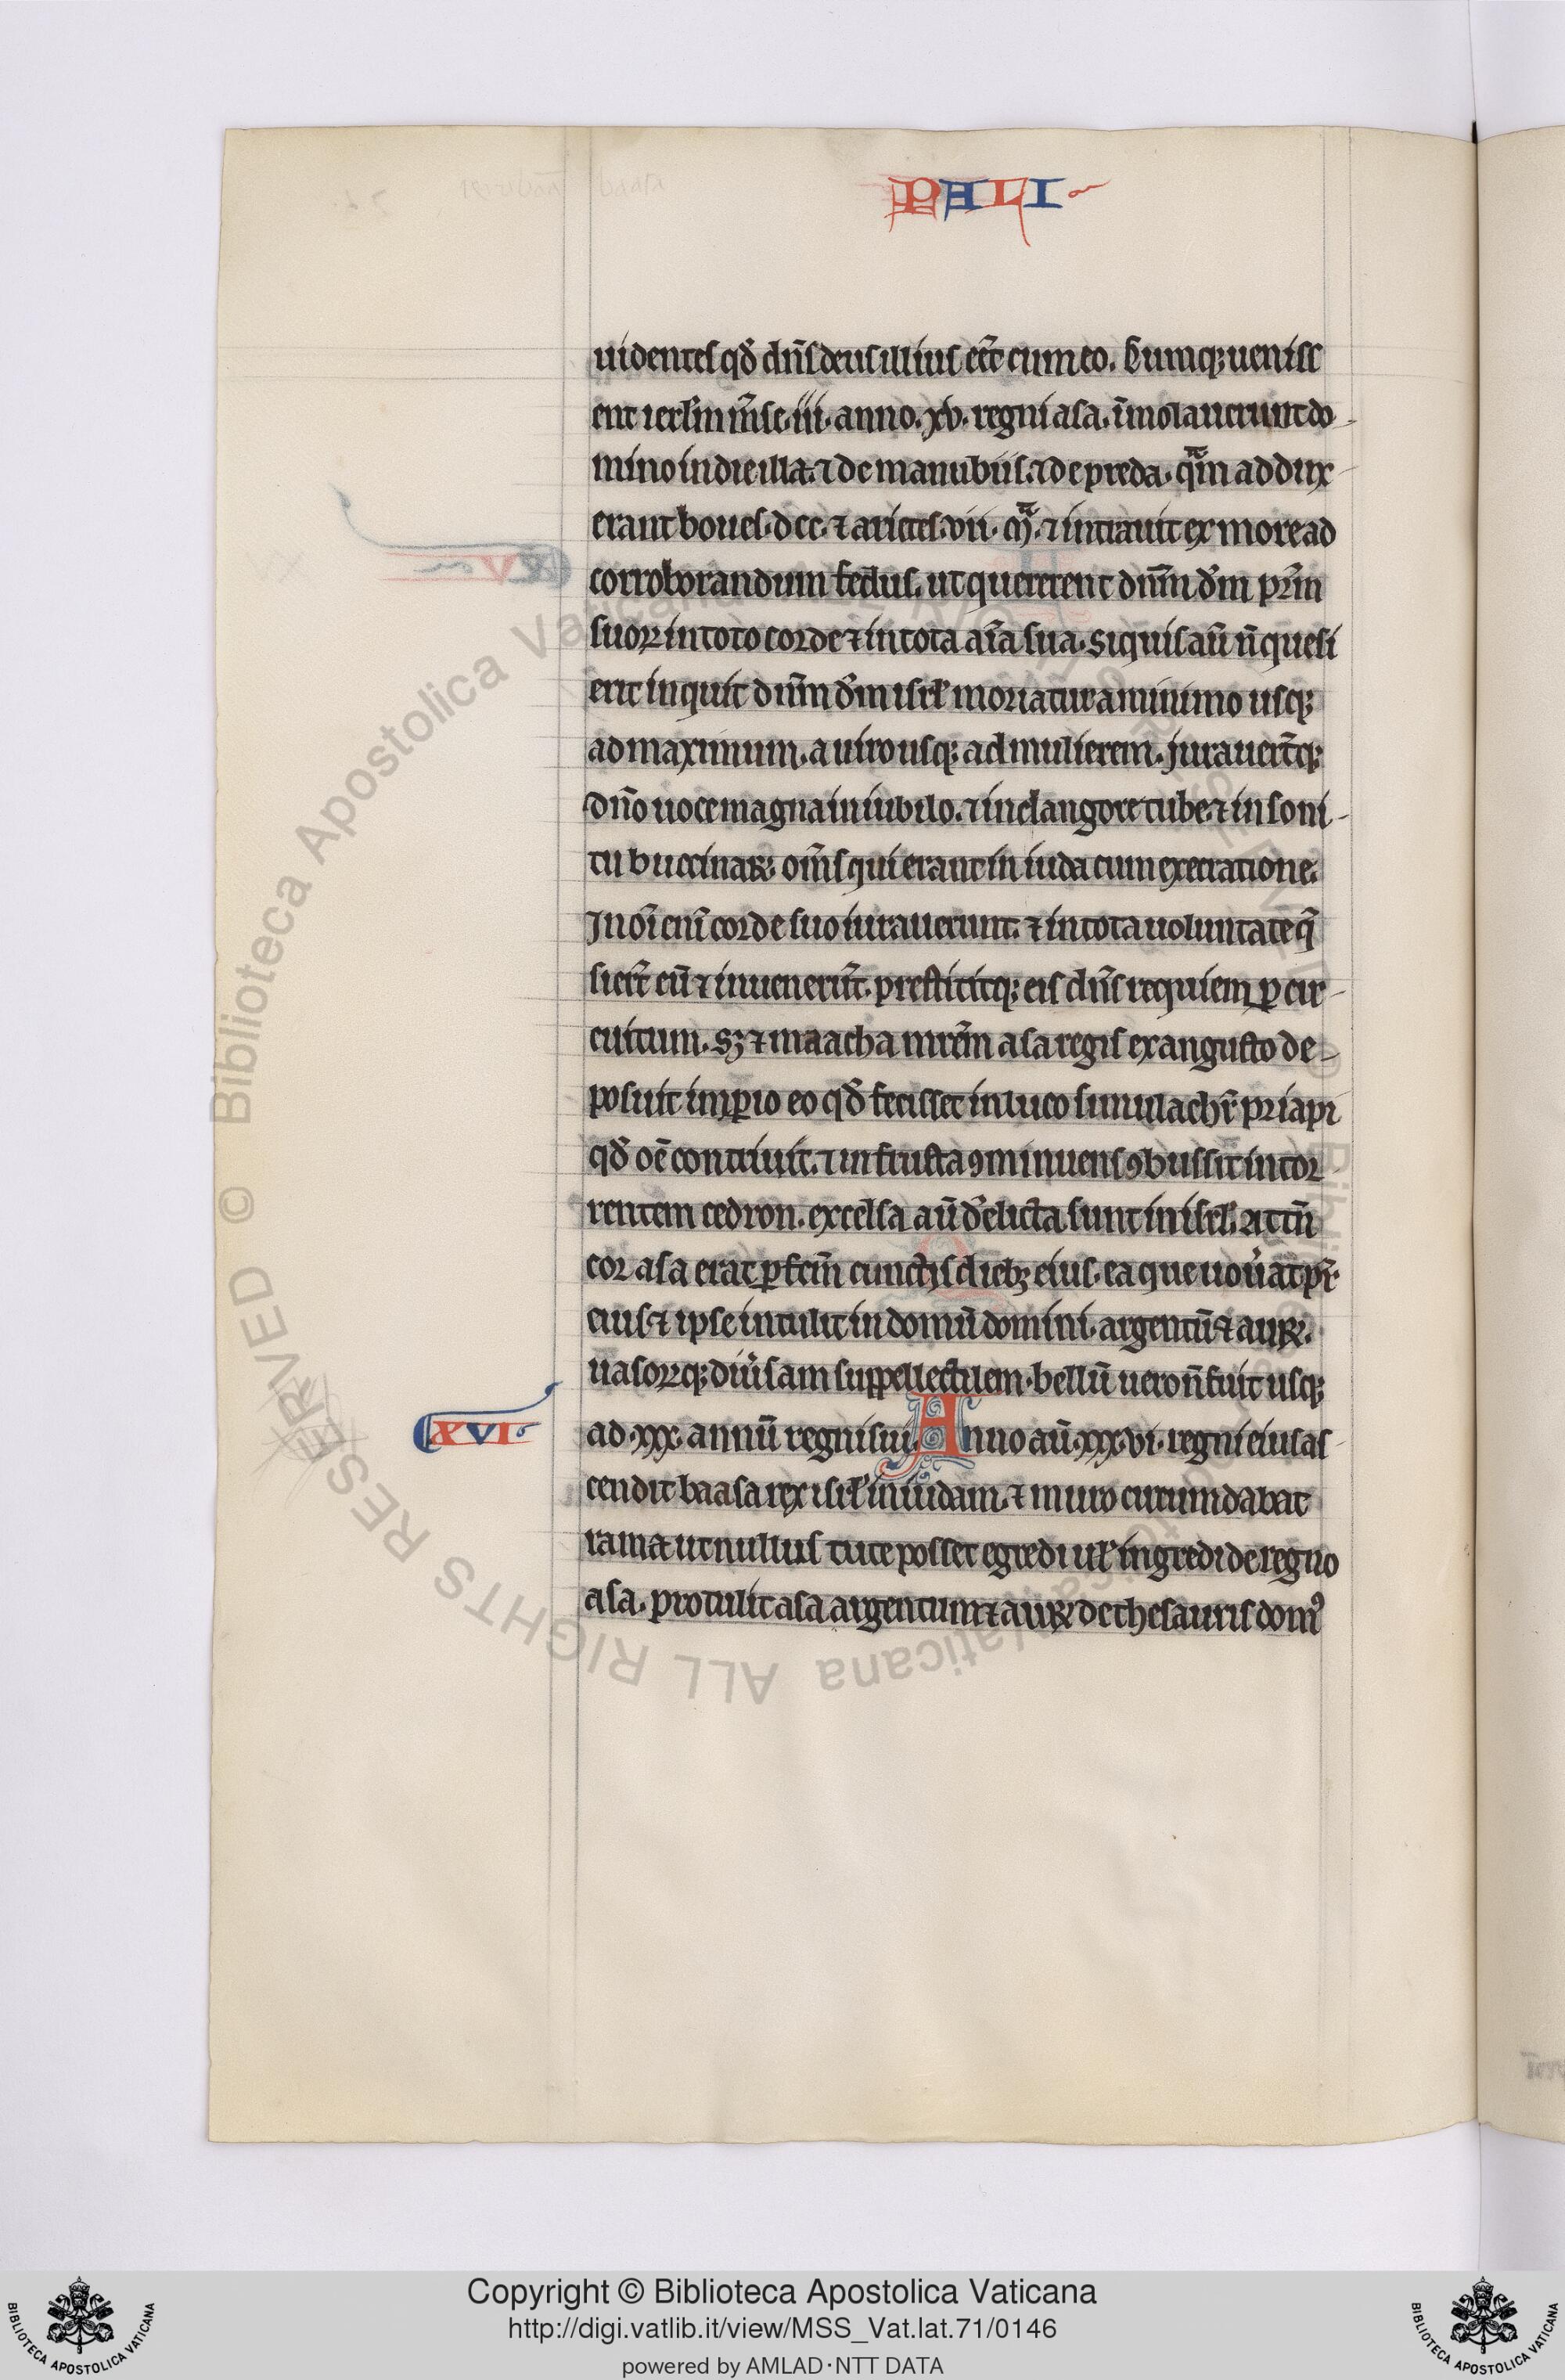 PALI
uidentes qď dn̄s deus illius eēt cum eo. Cumq; ueniss
ent ierl̄m m̄se .iii. anno .xv. regni asa. im̄olauerunt do
mino in die illa. ⁊ de manubiis. ⁊ de preda. quam̄ addux
erant boues .dcc. ⁊ arietes .vii. m̊. ⁊ intrauit ex more ad
corroborandum fedus. ut quererent dnm̄ dm̄ pr̄m
suoꝝ in toto corde ⁊ in tota aīa sua. Siquis aū n̄ quesi
erit inquit dnm̄ dm̄ isrł moriatur a minimo usq;
ad maximum. a uiro usq; ad mulierem. Jurauer̄tq;
dn̄o uoce magna in iubilo. ⁊ in clangore tube. ⁊ in soni
tu buccinaꝝ. om̄s qui erant in iuda cum execratione.
Jn oī enī corde suo iurauerunt. ⁊ in tota uoluntate q̄
sier̄t eū ⁊ inuenerūt. prestititq; eis dn̄s requiem ꝑ cir
cuitum. Sꝫ ⁊ maacha mr̄em asa regis ex angusto de
posuit imꝑio eo qď fecisset in luco simulachr̄ priapi
qď oē contriuit. ⁊ in frusta ꝯminuens ꝯbussit in tor
rentem cedron. excelsa aū d̓elicta sunt in isrł. At tn̄
cor asa erat ꝑfcm̄ cunctis diebꝫ eius. ea que uou̓at pr̄
eius ⁊ ipse intulit in domū domini. argentū ⁊ auꝝ.
uasoꝝq; diu̓sam suppellectilem. bellū uero n̄ fuit usq;
XVI.
ad .xxx. annū regni sui. Anno aū .xxx.vi. regni eius as
cendit baasa rex isrł in iudam. ⁊ muro circumdabat
rama ut nullus tute posset egredi uł ingredi de regno
asa. protulit asa argentum ⁊ auꝝ de thesauris domꝰ
Copyright © Biblioteca Apostolica Vaticana
http://digi.vatlib.it/view/MSS_Vat.lat.71/0146
powered by AMLAD·NTT DATA